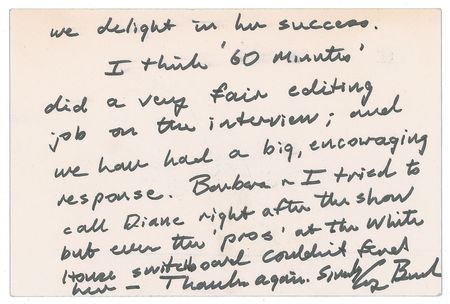 we delight in her success.
I think '60 Minutes'
did a very fair editing
job on the interview; and
we have had a big, encouraging
response. Barbara & I tried to
call Diane right after the show
but even the 'pros' at the White
House switchboard couldn't find
her — Thanks again. Sincerely, Bush